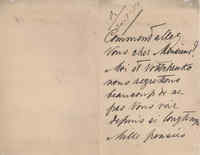 Comment allez
Vous cher Monsieur?
Moi et
nous regrettons
beaucoup de ne
pas Vous voir
depuis si longtemps
Mille pensées